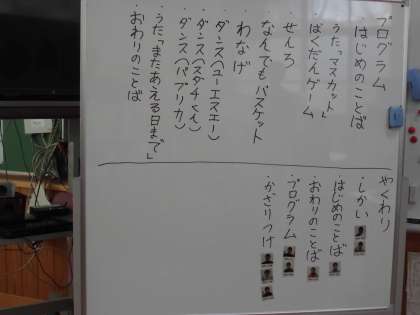 プログラム
・はじめのことば
・うた「マスカット」
・ばくだんゲーム
・せんろ
・なんでもバスケット
・わなげ
・ダンス(ユーエスエー)
・ダンス(スタチくん)
・ダンス(パプリカ)
・うた「またあえる日まで」
・おわりのことば
やくわり
・しかい
・はじめのことば
・おわりのことば
・プログラム
・かざりつけ